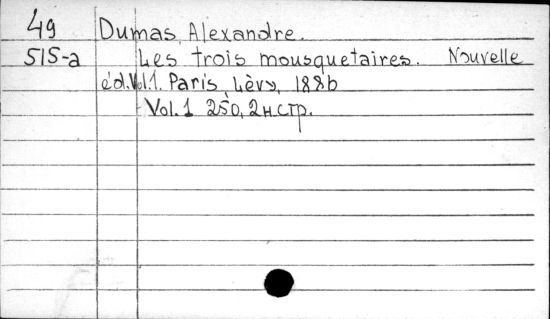 49 Dumas, Alexandre.
515-a Les trois mousquetaires. Nouvelle
éd. Vol.1. Paris, Lèvy, 1886
Vol.1 250, 2 н.стр.